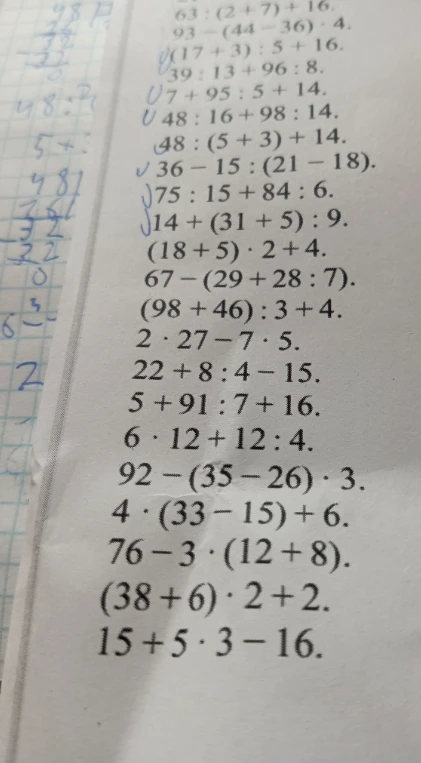 63 : (2 + 7) + 16.
93 − (44 − 36) · 4.
(17 + 3) : 5 + 16.
39 : 13 + 96 : 8.
7 + 95 : 5 + 14.
48 : 16 + 98 : 14.
48 : (5 + 3) + 14.
36 − 15 : (21 − 18).
75 : 15 + 84 : 6.
14 + (31 + 5) : 9.
(18 + 5) · 2 + 4.
67 − (29 + 28 : 7).
(98 + 46) : 3 + 4.
2 · 27 − 7 · 5.
22 + 8 : 4 − 15.
5 + 91 : 7 + 16.
6 · 12 + 12 : 4.
92 − (35 − 26) · 3.
4 · (33 − 15) + 6.
76 − 3 · (12 + 8).
(38 + 6) · 2 + 2.
15 + 5 · 3 − 16.